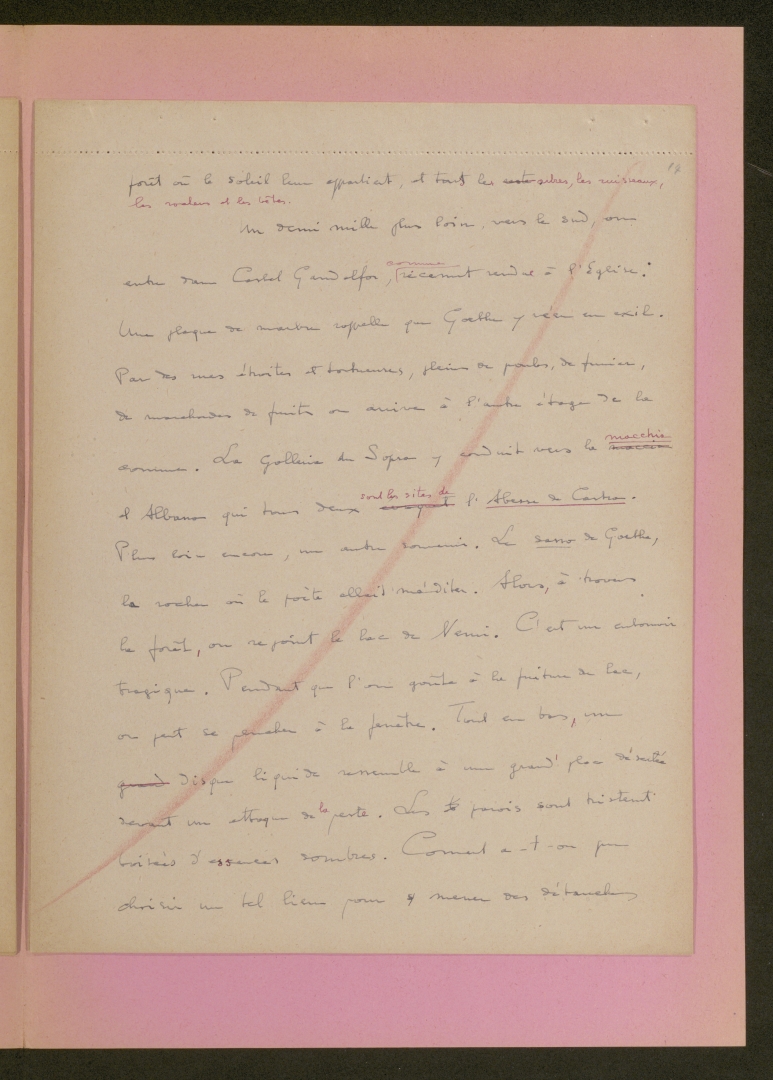 forêt où le soleil leur appartient, et tout les arbres, les ruisseaux,
les rochers et les bêtes.
Un demi mille plus loin, vers le sud, on
entre dans Castel Gandolfo, comme récemment rendue à l'Eglise.
Une plaque de marbre rappelle que Goethe y vécu en exil.
Par des rues étroites et tortueuses, pleins de poules, de fumier,
de marchandes de fruits on arrive à l'autre étage de la
comune. La Galleria du Sopra y conduit vers la macchia
et Albano qui tous deux sont les sites de l'Abesse de Castro.
Plus loin encore, un autre souvenir. Le sasso de Goethe,
le rocher où le poète allait méditer. Alors, à travers
la forêt, on rejoint le lac de Nemi. C'est un entonnoir
tragique. Pendant que l'on goûte à la friture du lac,
on peut se pencher à la fenêtre. Tout en bas, un
grand disque liquide ressemble à une grand' place désertée
devant une attaque de la peste. Les parois sont tristement
boisées d'essences sombres. Comment a-t-on pu
choisir un tel lieu pour y mener des débauches